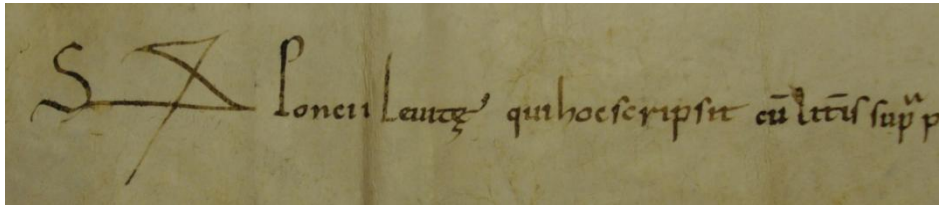 S Poncii Leuitę qui hoc scripsit cū litīs sup̄ᵃ p